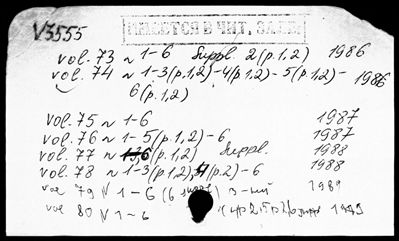 V3555
ИМЕЕТСЯ В ЧИТ. ЗАЛЕ
vol. 73 N 1-6 Suppl. 2(p.1,2) 1986
vol. 74 N 1-3(p.1,2)-4(p.1,2)-5(p.1,2)- 1986
6(p.1,2)
vol. 75 N 1-6 1987
vol. 76 N 1-5(p.1,2)-6 1987
vol. 77 N (p.1,2) Suppl. 1988
vol. 78 N 1-3(p.1,2), 4(p.2)-6 1988
vol 79 N 1-6 (6 suppl) 1989
vol 80 N 1-6